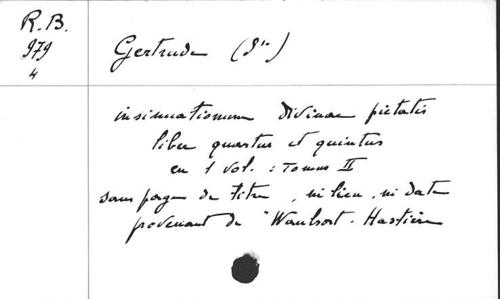 R.B.
979
4
Gertrude (Ste)
insinuationum divinae pietatis
liber quartus et quintus
en 1 vol. : Tomus II
sans page de titre, ni lieu, ni date
provenant de "Waulsort-Hastière